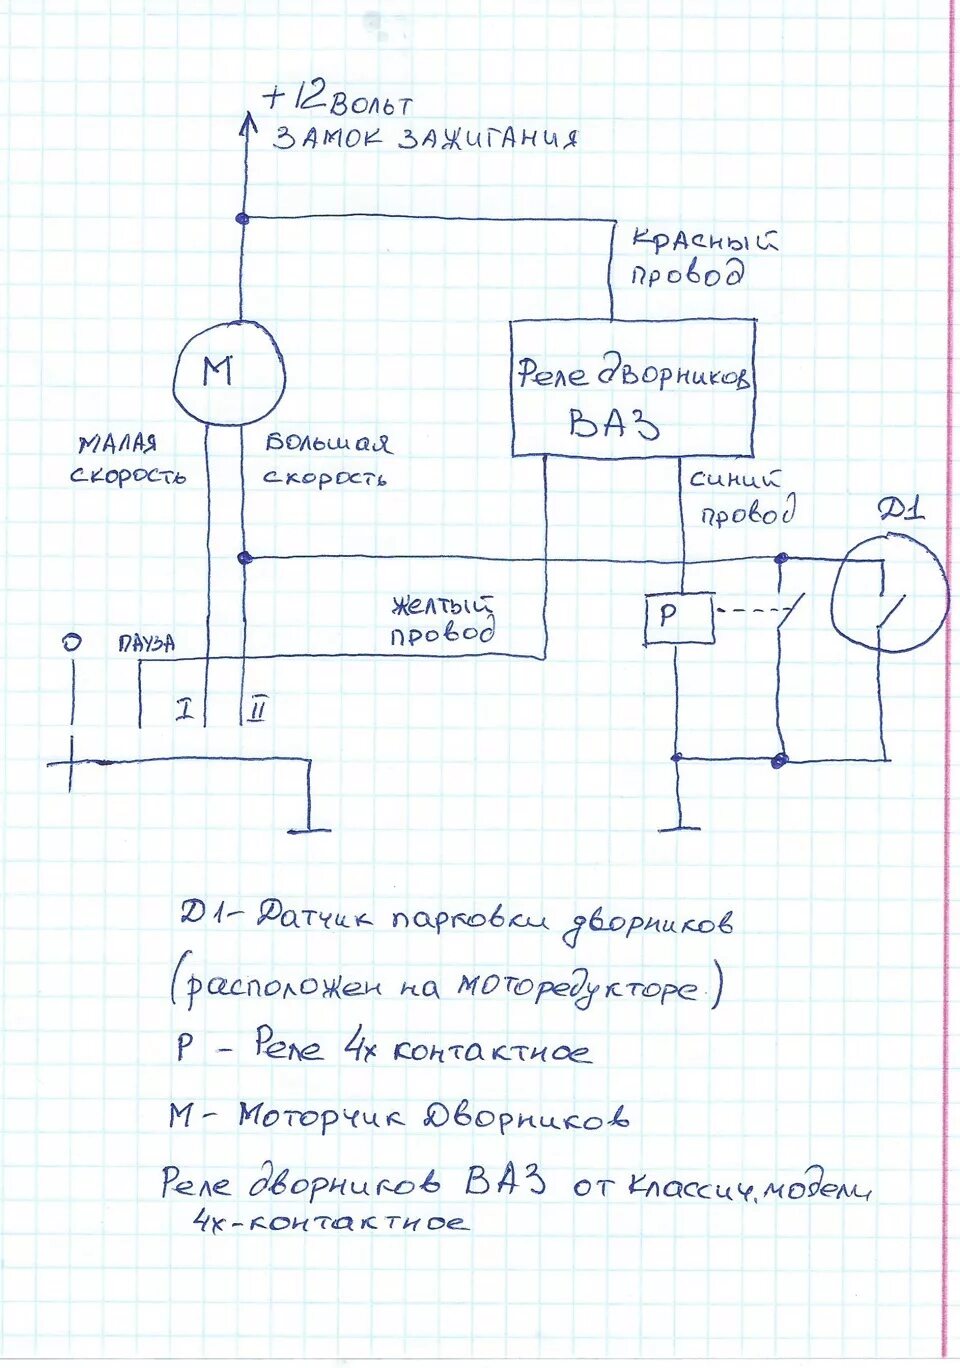 +12 ВОЛЬТ
ЗАМОК ЗАЖИГАНИЯ
КРАСНЫЙ
ПРОВОД
М
Реле дворников
ВАЗ
МАЛАЯ
СКОРОСТЬ
БОЛЬШАЯ
СКОРОСТЬ
СИНИЙ
ПРОВОД
Д1
ЖЕЛТЫЙ
ПРОВОД
Р
О
ПАУЗА
I
II
Д1- Датчик парковки дворников
(расположен на моторедукторе)
Р - Реле 4х контактное
М- Моторчик Дворников
Реле дворников ВАЗ от классич. модели
4х-контактное